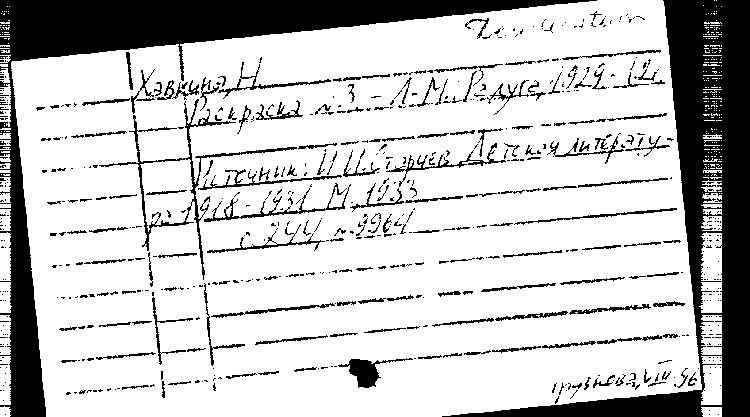 Desideratum
Хавкина, Н.
Раскраска № 3. - Л-М.: Радуга, 1929. - 12с.
Источник: И.И. Старцев. Детская литерату-
ра 1918-1931. М., 1933
с. 244, № 9964
Трузнова, VIII.96